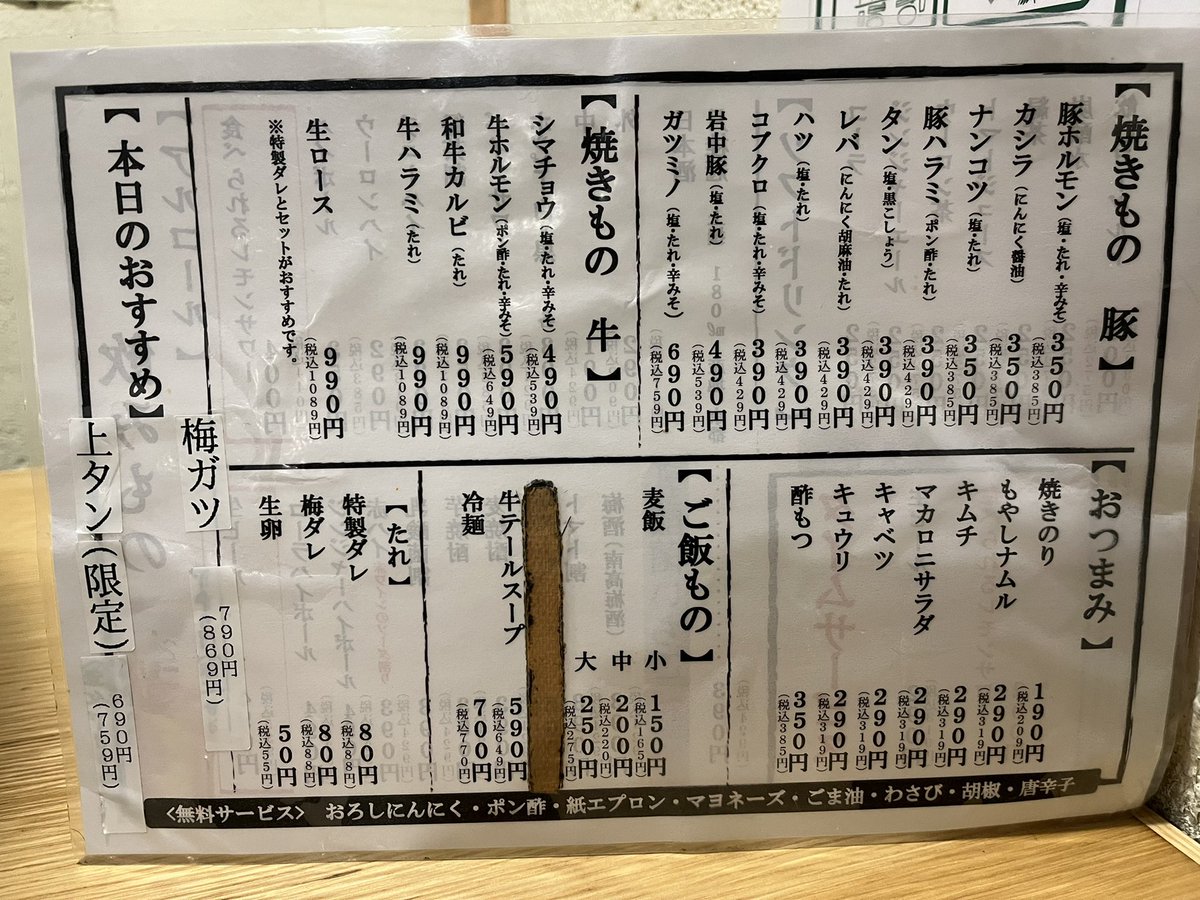 【焼きもの 豚】
豚ホルモン(塩・たれ・辛みそ) 350円(税込385円)
カシラ(にんにく醤油) 350円(税込385円)
ナンコツ(塩・たれ) 350円(税込385円)
豚ハラミ(ポン酢・たれ) 390円(税込429円)
タン(塩・黒こしょう) 390円(税込429円)
レバ(にんにく胡麻油・たれ) 390円(税込429円)
ハツ(塩・たれ) 390円(税込429円)
コブクロ(塩・たれ・辛みそ) 390円(税込429円)
岩中豚(塩・たれ) 490円(税込539円)
ガツミノ(塩・たれ・辛みそ) 690円(税込759円)
【焼きもの 牛】
シマチョウ(塩・たれ・辛みそ) 490円(税込539円)
牛ホルモン(ポン酢・たれ・辛みそ) 590円(税込649円)
和牛カルビ(たれ) 990円(税込1089円)
牛ハラミ(たれ) 990円(税込1089円)
生ロース 990円(税込1089円)
※特製ダレとセットがおすすめです。
【おつまみ】
焼きのり 190円(税込209円)
もやしナムル 290円(税込319円)
キムチ 290円(税込319円)
マカロニサラダ 290円(税込319円)
キャベツ 290円(税込319円)
キュウリ 290円(税込319円)
酢もつ 350円(税込385円)
【ご飯もの】
麦飯 小 150円(税込165円)
中 200円(税込220円)
大 250円(税込275円)
牛テールスープ 590円(税込649円)
冷麺 700円(税込770円)
【たれ】
特製ダレ 80円(税込88円)
梅ダレ 80円(税込88円)
生卵 50円(税込55円)
【本日のおすすめ】
梅ガツ 790円(869円)
上タン(限定) 690円(759円)
<無料サービス> おろしにんにく・ポン酢・紙エプロン・マヨネーズ・ごま油・わさび・胡椒・唐辛子